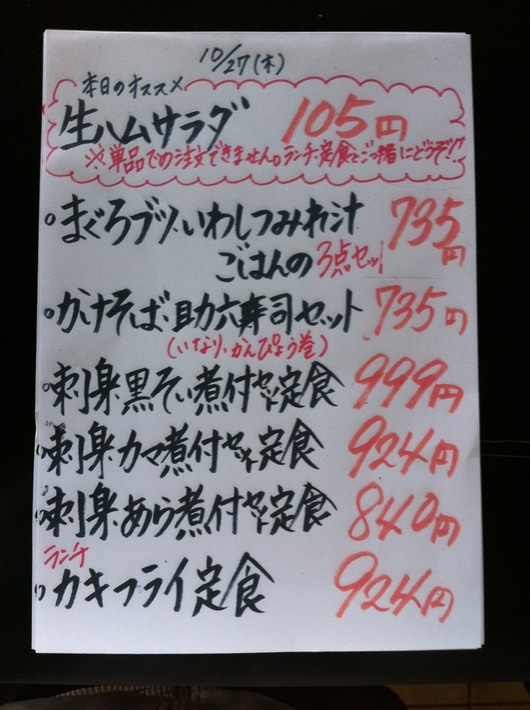 10/27(木)
本日のオススメ
生ハムサラダ 105円
※単品での注文できません。ランチ、定食とご一緒にどうぞ!!
まぐろブツ、いわしつみれ汁 735円
ごはんの3点セット
かけそば、助六寿司セット 735円
(いなり、かんぴょう巻)
刺身、黒そい煮付セット定食 999円
刺身、カマ煮付セット定食 924円
刺身、あら煮付セット定食 840円
ランチ
カキフライ定食 924円